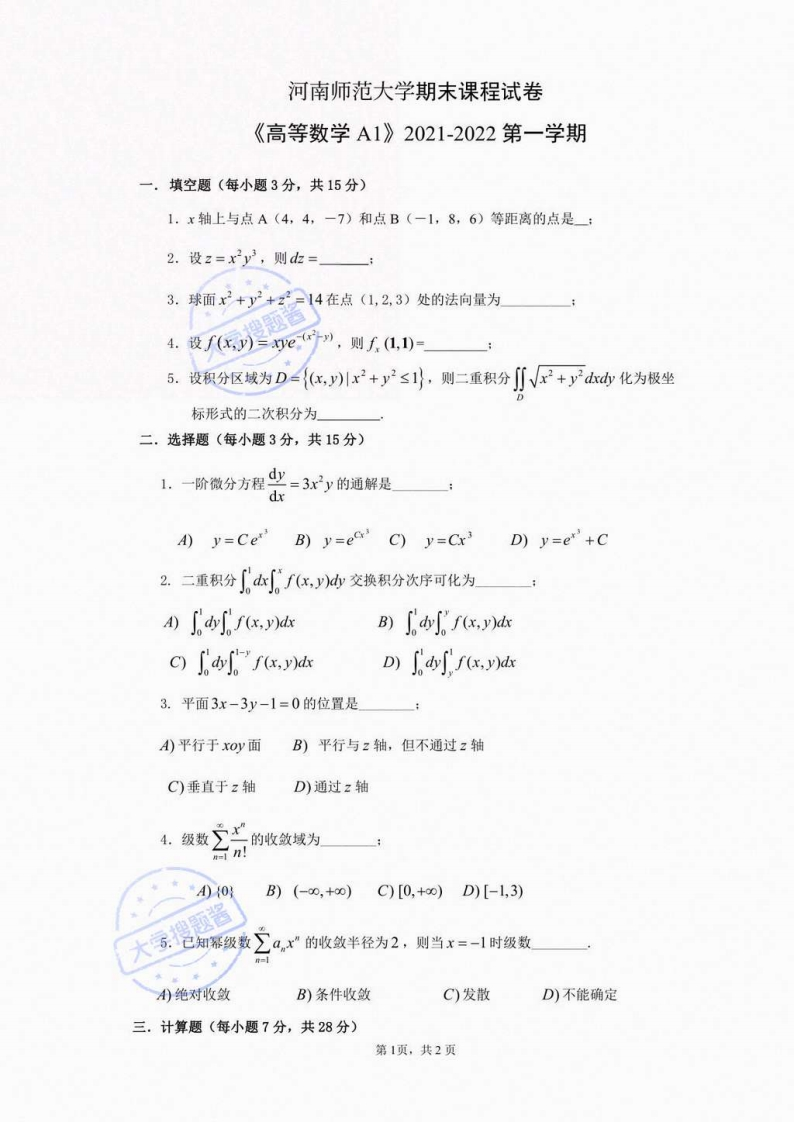 河南师范大学期末课程试卷
《高等数学 A1》2021-2022 第一学期
一．填空题（每小题 3 分，共 15 分）
1．x 轴上与点 A（4，4，－7）和点 B（－1，8，6）等距离的点是__；
2．设 z = x²y³，则 dz = ________；
3．球面 x² + y² + z² = 14 在点（1,2,3）处的法向量为__________；
4．设 f(x,y) = xye^{-(x²-y)}，则 fₓ (1,1)=_________；
5．设积分区域为 D = {(x,y) | x² + y² ≤ 1}，则二重积分 ∬_D √(x² + y²) dxdy 化为极坐
标形式的二次积分为_________．
二．选择题（每小题 3 分，共 15 分）
1．一阶微分方程 dy/dx = 3x²y 的通解是________；
A) y = C e^{x³} B) y = e^{Cx³} C) y = Cx³ D) y = e^{x³} + C
2. 二重积分 ∫₀¹ dx ∫₀ˣ f(x,y)dy 交换积分次序可化为________；
A) ∫₀¹ dy ∫₀¹ f(x,y)dx B) ∫₀¹ dy ∫₀^y f(x,y)dx
C) ∫₀¹ dy ∫₀^{1-y} f(x,y)dx D) ∫₀¹ dy ∫_y¹ f(x,y)dx
3. 平面 3x − 3y − 1 = 0 的位置是________；
A) 平行于 xoy 面 B) 平行与 z 轴，但不通过 z 轴
C) 垂直于 z 轴 D) 通过 z 轴
4．级数 ∑_{n=1}^{∞} xⁿ/n! 的收敛域为________；
A) {0} B) (−∞,+∞) C) [0,+∞) D) [−1,3)
5．已知幂级数 ∑_{n=1}^{∞} aₙxⁿ 的收敛半径为 2，则当 x = −1 时级数________．
A) 绝对收敛 B) 条件收敛 C) 发散 D) 不能确定
三．计算题（每小题 7 分，共 28 分）
第 1页，共 2 页
大学搜题酱
大学搜题酱